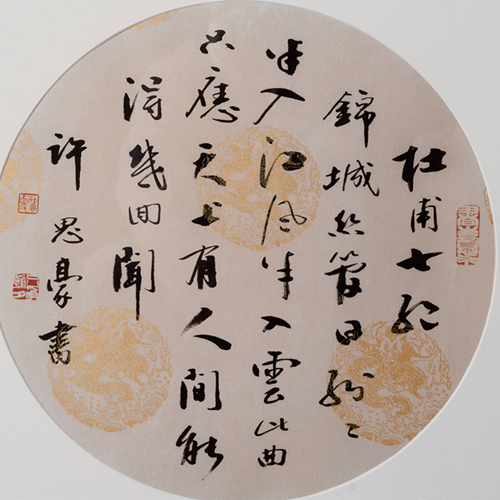 杜甫七絕
錦城絲管日紛〻
半入江風半入雲此曲
只應天上有人間能
得幾回聞
許思豪書